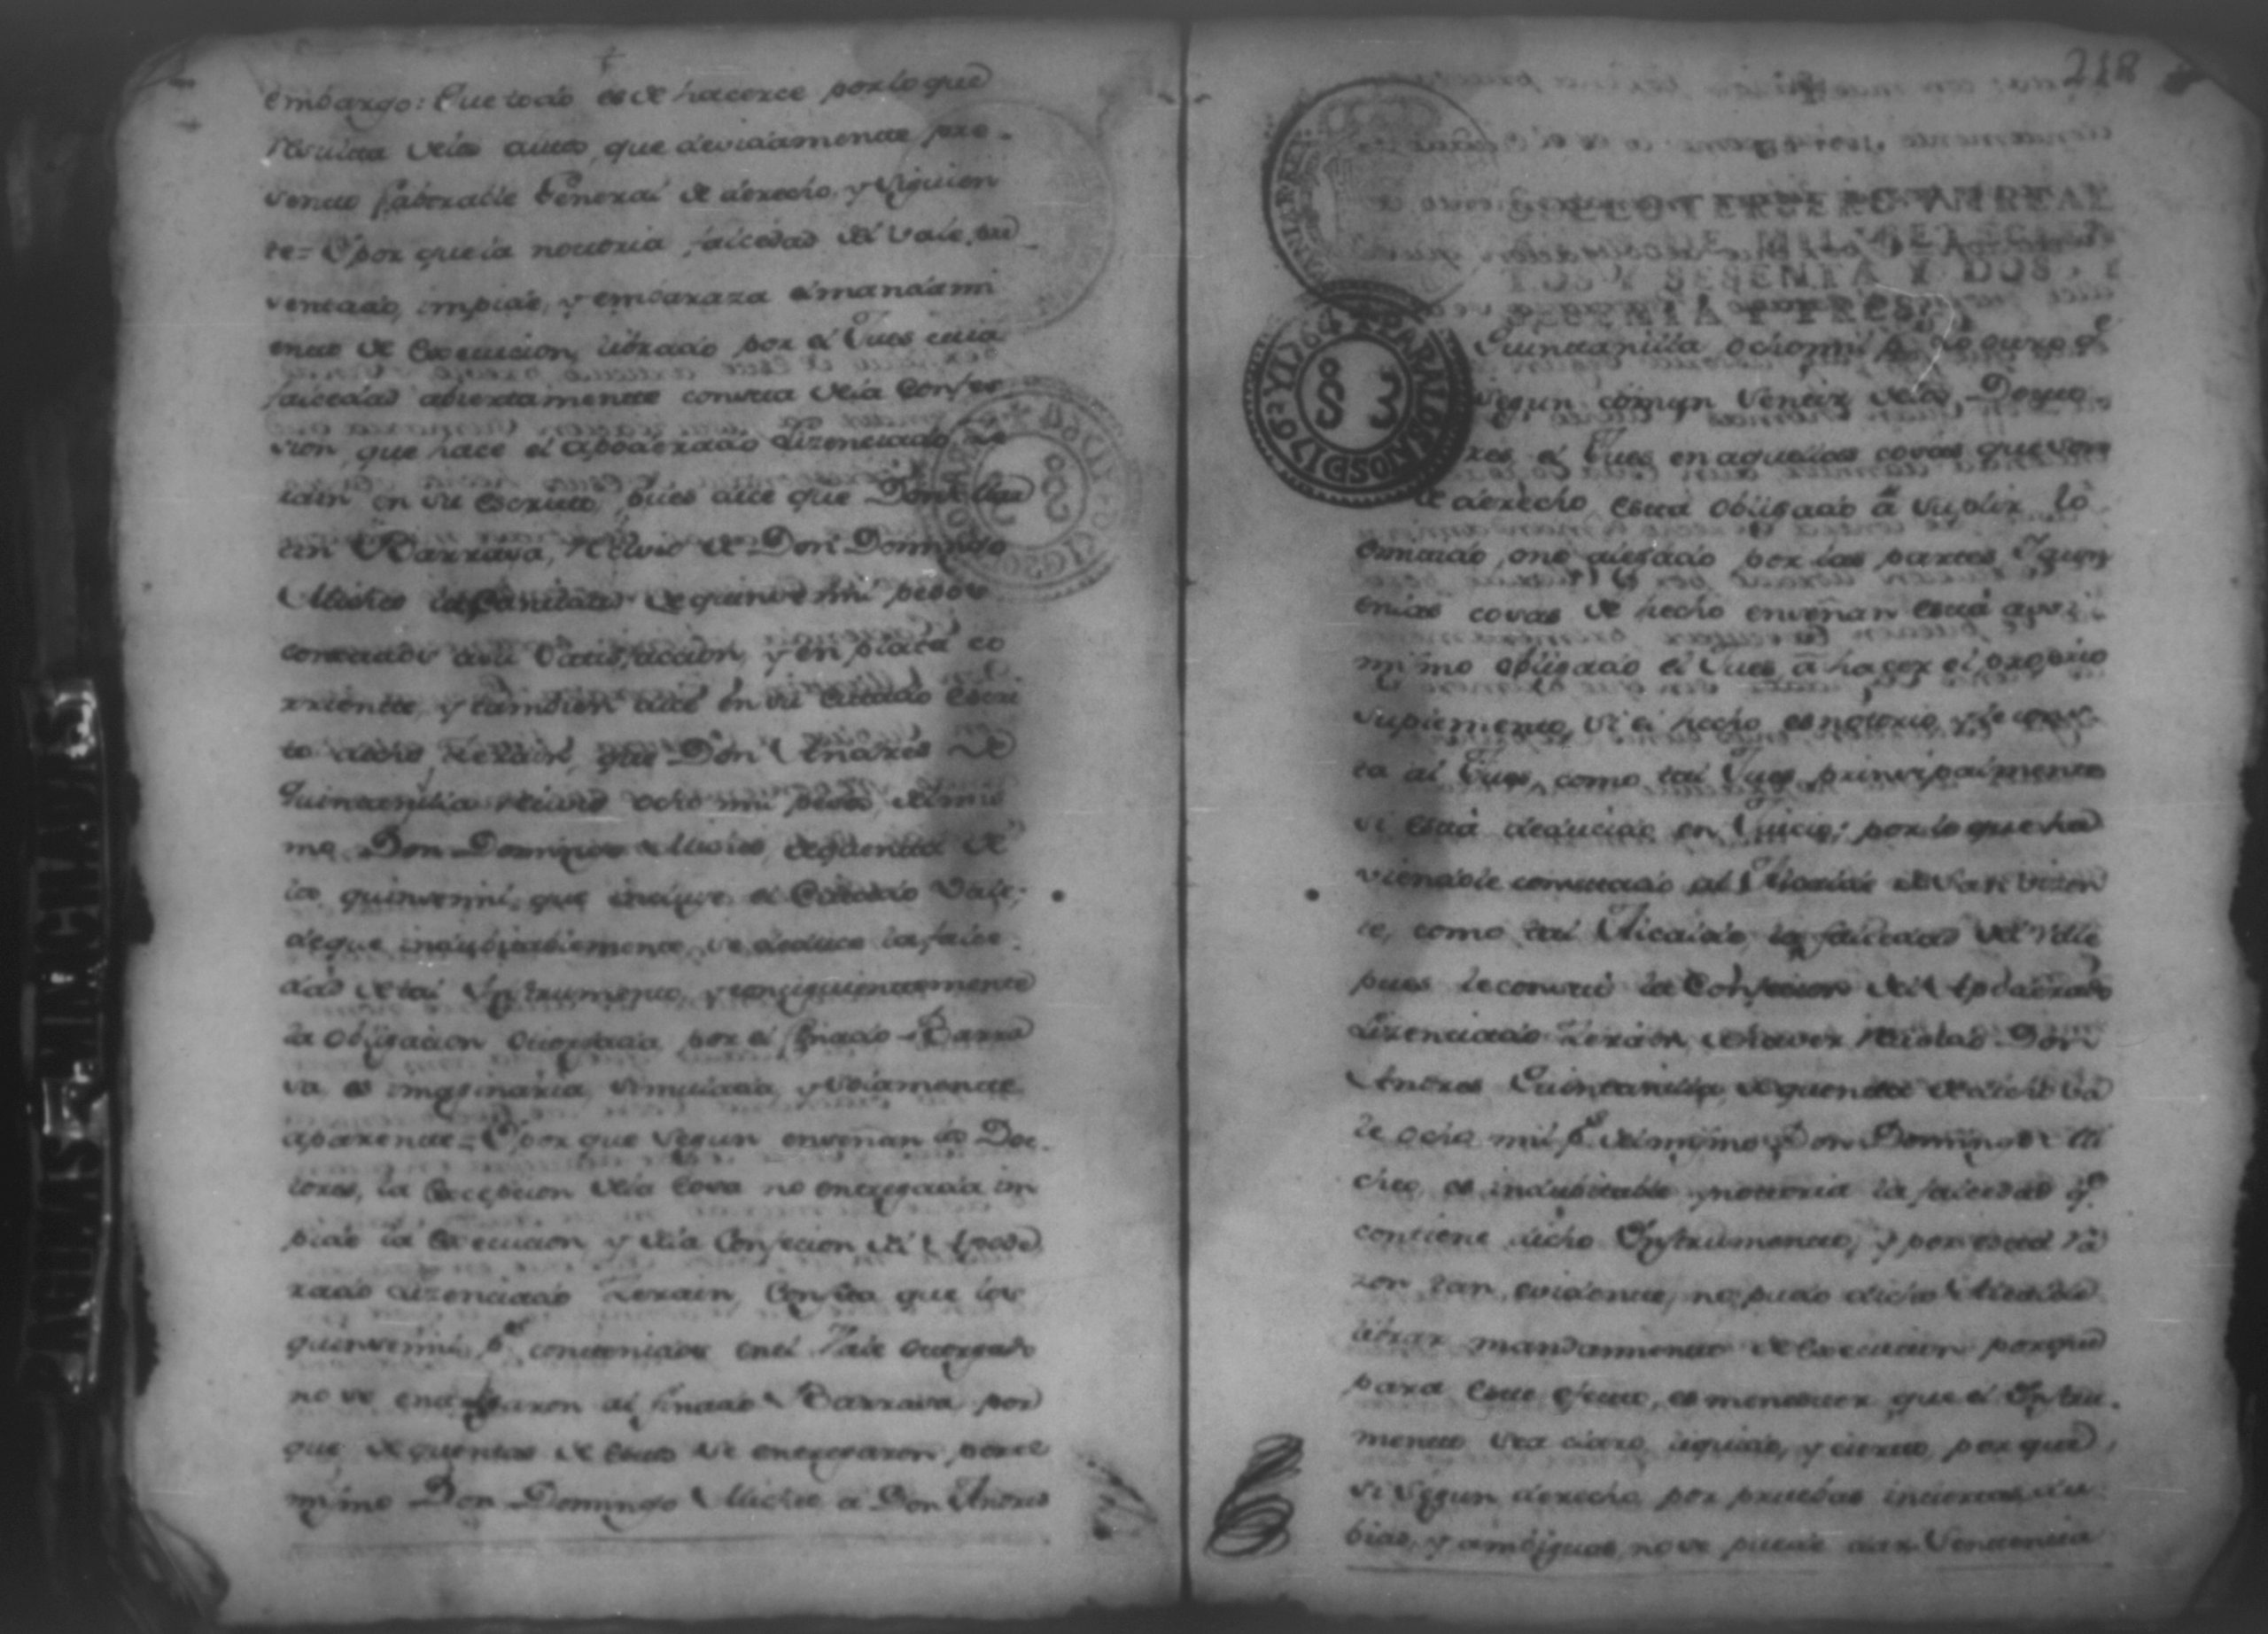 embargo: Que todo es de hacerce por lo que
resulta delos autos, que devidamente pre-
sento faborable General de derecho, y siguien
te= Y por que la notoria falcedad del vale, pre
sentado, impide, y embaraza el mandami
ento de Execucion librado por el Jues cuia
falcedad abiertamente consta dela Confes
sion, que hace el apoderado Lizenciado
en su escrito, pues dice que Don
Barraza, recivio de Don Domingo
Micheo la Cantidad de quinse mil pesos
contados a su Satisfaccion, y en plata co
rriente, y tambien dice en su citado escri
to dicho Zerain, que Don Andres de
Quintanilla recivio ocho mil pesos, del mis
mo Don Domingo Micheo, de quenta de
los quinse mil, que incluye el Citado Vale;
de que indubitablemente, se deduce la falce-
dad de tal Instrumento, y consiguientemente
la obligacion otorgada por el finado Barra
sa es imaginaria, simulada, y solamente
aparente= Y por que segun enseñan los Doc-
tores, la Excepcion dela Cosa no entregada im
pide la Execucion y dela Confecion del Apode
rado Lizenciado Zerain, Consta que los
quinse mil ps contenidos en el Vale otorgado
no se entregaron al finado Barrasa, por
que de quentas de estos se entregaron, por el
mismo Don Domingo Micheo a Don Andres
218
SELLO TERSERO VN REAL
MIL SETECIEN
TOS Y SESENTA Y DOS, Y
SESENTA Y TRES.
PARA LOS AÑOS D 1763 Y 1764
S 3
Quintanilla ocho mil ps
segun comun sentir delos Docto-
res el Jues en aquellas cosas que son
de derecho está obligado á suplir lo
omitido, o no alegado por las partes, Y aun
en las cosas de hecho enseñan está assi
mismo obligado el Jues, á hacer el proprio
suplemento, si el hecho es notorio, y le cons-
ta al Jues, como tal Jues, principalmente
si está deducido en Juicio; por lo que ha
viendole constado al Alcalde de San Vicen
te, como tal Alcalde, la falcedad del Vale
pues le consta la Confecion del Apoderado
Lizenciado Zerain, de haver recivido Don
Andres Quintanilla, de quenta de dicho Va
le ocho mil ps del mismo Don Domingo Mi
cheo, es indubitable y notoria la falcedad qe
contiene dicho Instrumento, y por esta ra
zon tan evidente, no pudo dicho Alcalde
librar mandamiento de Execucion porque
para este efecto, es menester que el Instru-
mento sea claro, liquido, y cierto, por que
si segun derecho, por pruebas inciertas, du-
bias, y ambiguas, no se puede dar Sentencia